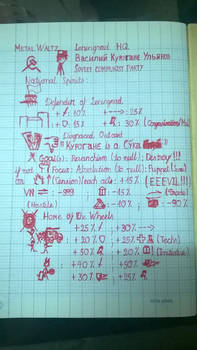 METAL WALTZ Leningrad HQ
Василий Курогане Ульянов
SOVIET COMMUNIST PARTY
National Spirits:
Defender of Leningrad
: ↑ 10% : 25%
+ : 15% : 30%
Disgraced Outcast
Курогане is a Сука
Goal(s): Revanchism (to null): Destroy!!!
if not: Focus: Absolution (to null):
(Tension) (each act): +15% (EEEVIL!!!)
: -999 : -15%
(Hostile) : -40% : -90%
Home of the Wheels
: +25% : +30%
: +20% : +25% (Techs)
: +50% : +20% (Initiative)
: +40% : +50%
: +30% : +25%